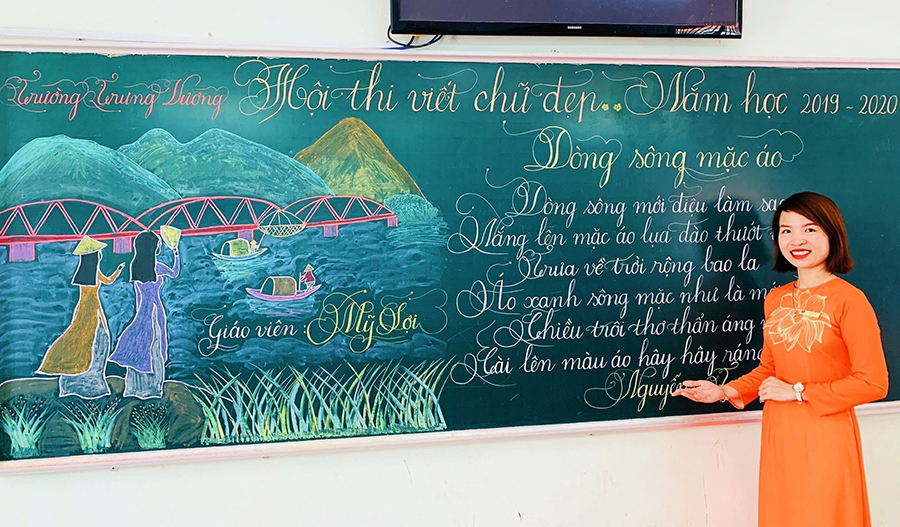 SAMSUNG
Trường Trưng Vương
Hội thi viết chữ đẹp.. Năm học 2019 - 2020
Dòng sông mặc áo
Dòng sông mới điệu làm
Nắng lên mặc áo lụa đào thướt
Trưa về trời rộng bao la
Áo xanh sông mặc như là
Chiều trôi thơ thẩn áng
Cài lên màu áo hây hây ráng
Nguyễn
Giáo viên : Mỹ Lợi